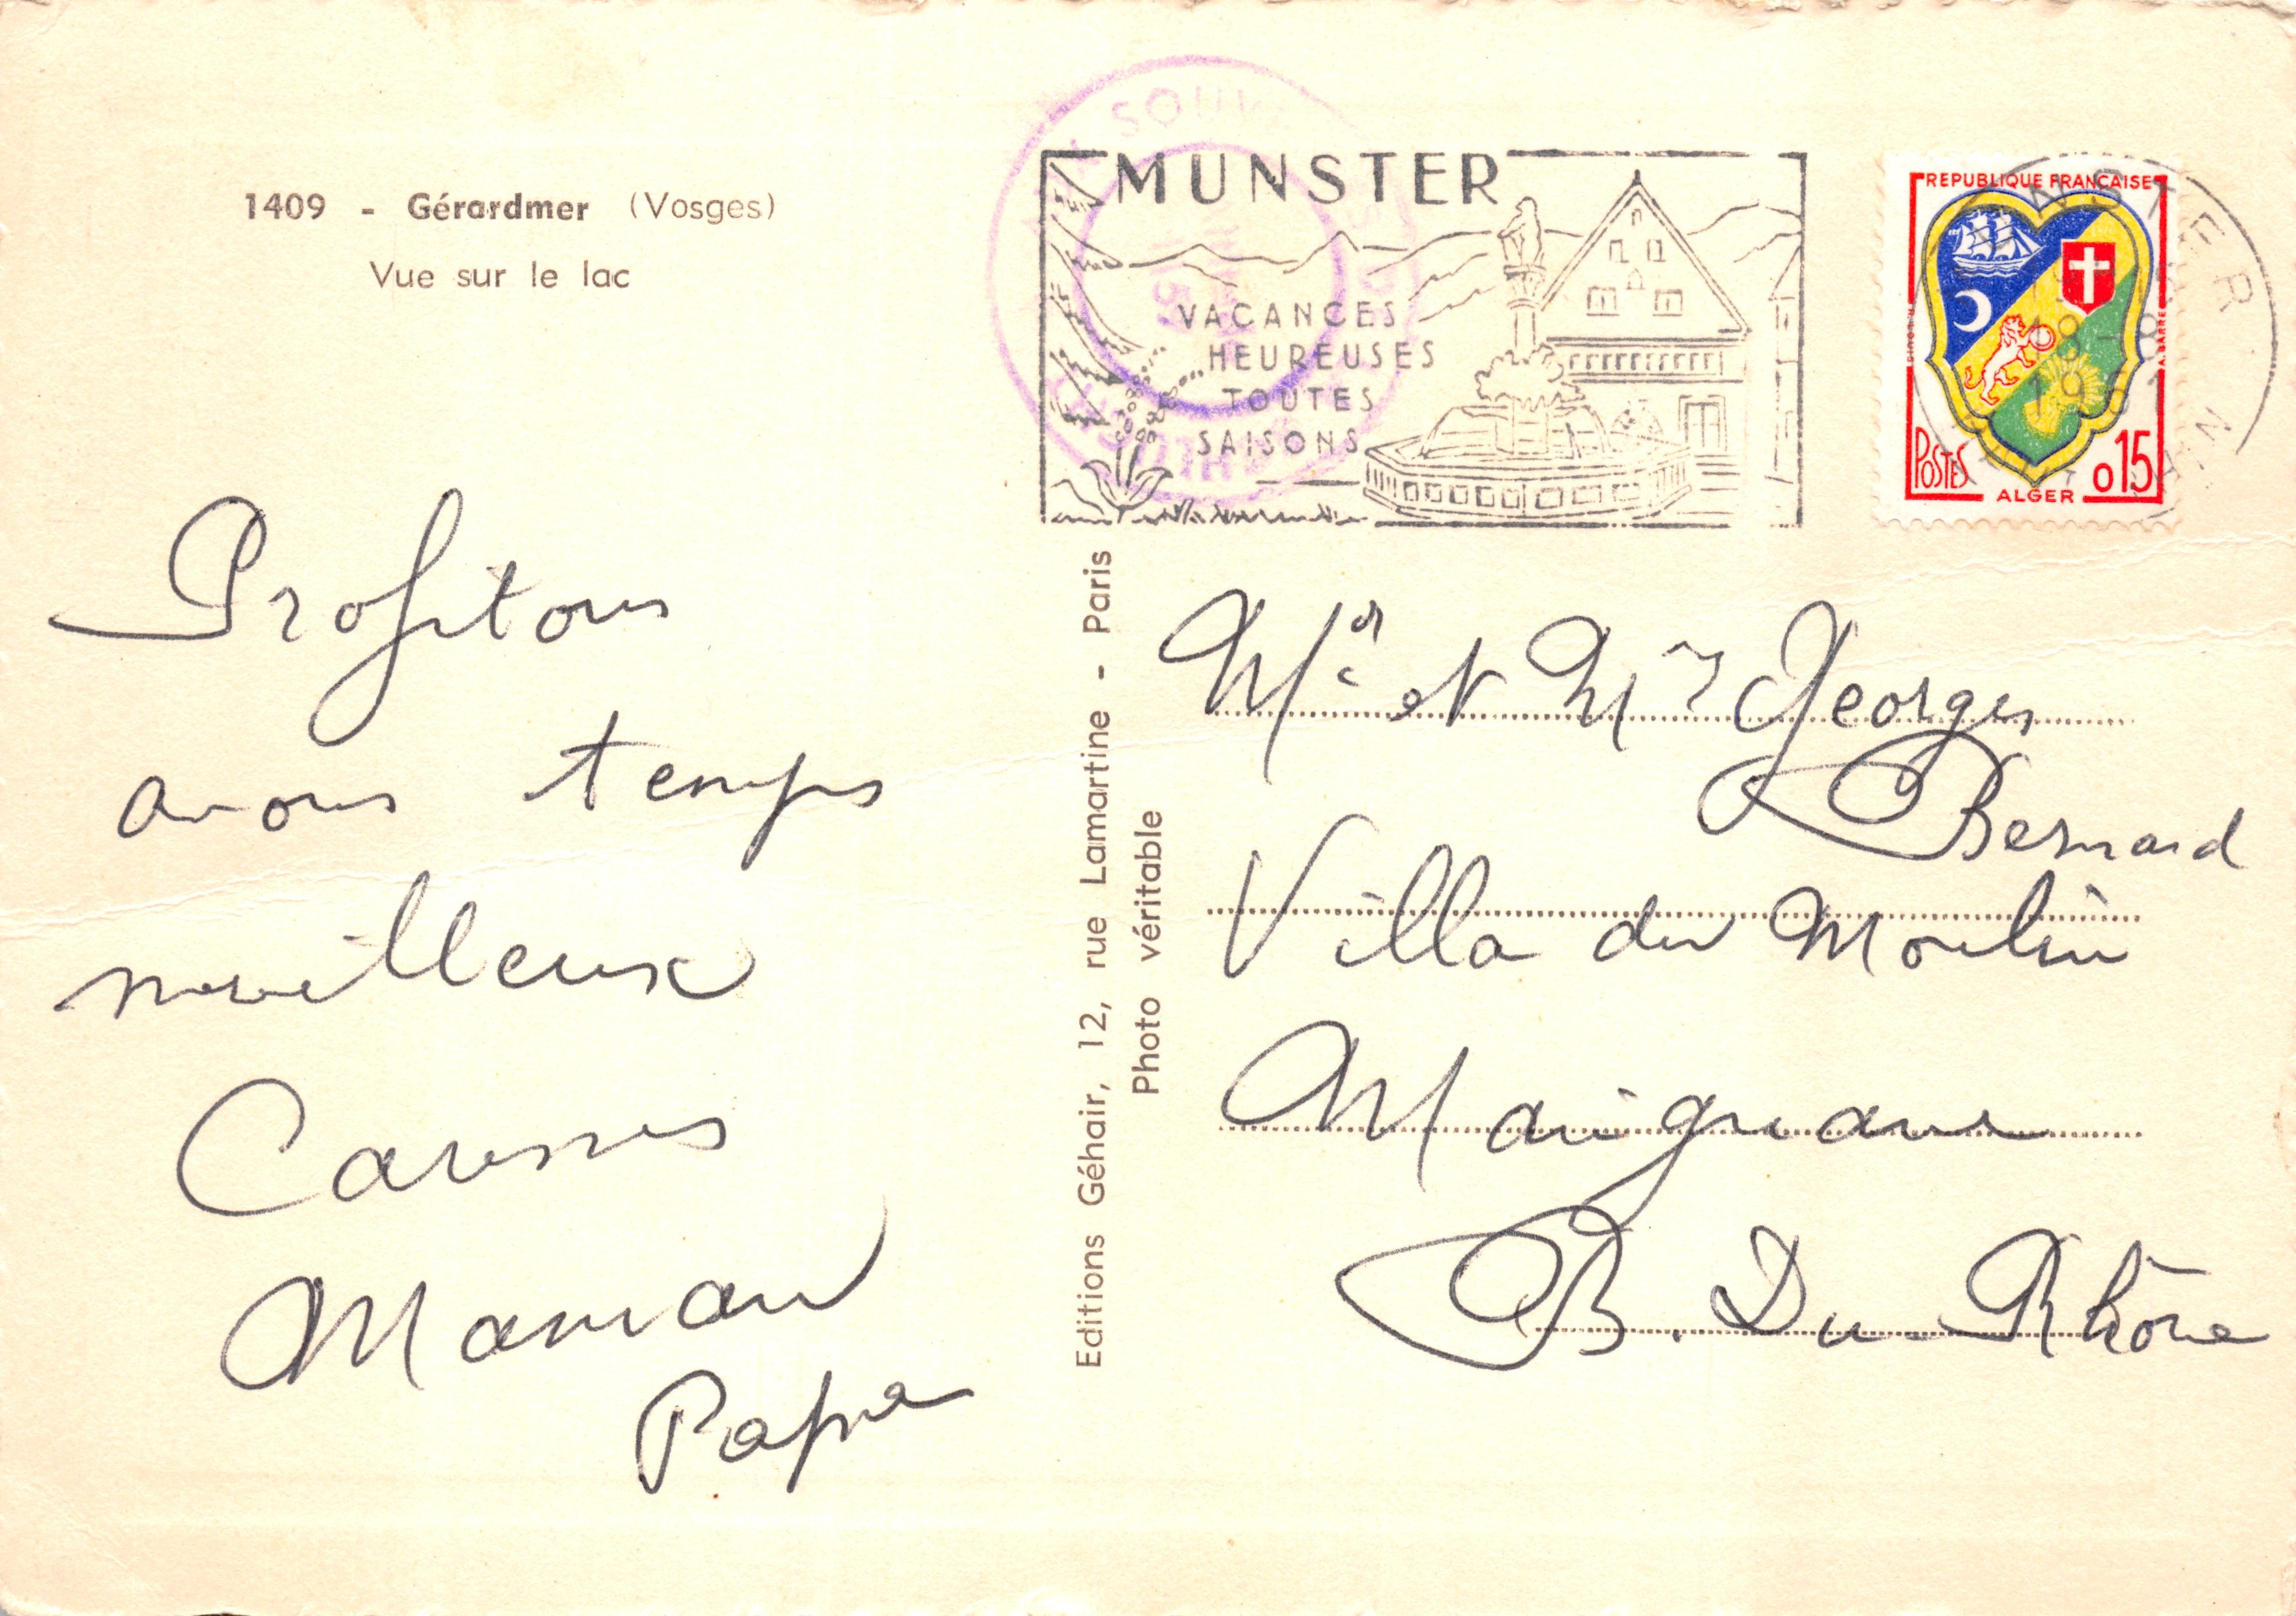 1409 - Gérardmer (Vosges)
Vue sur le lac
Profitons
avons temps
merveilleux
Caresses
Maman
Papa
Editions Géhair, 12, rue Lamartine - Paris
Photo véritable
MUNSTER
VACANCES
HEUREUSES
TOUTES
SAISONS
SOUV
REPUBLIQUE FRANÇAISE
POSTES
ALGER
0,15
MUNSTER
18-8
1961
Mr et Mme Georges
Bernard
Villa du Moulin
Marignane
B. Du Rhône